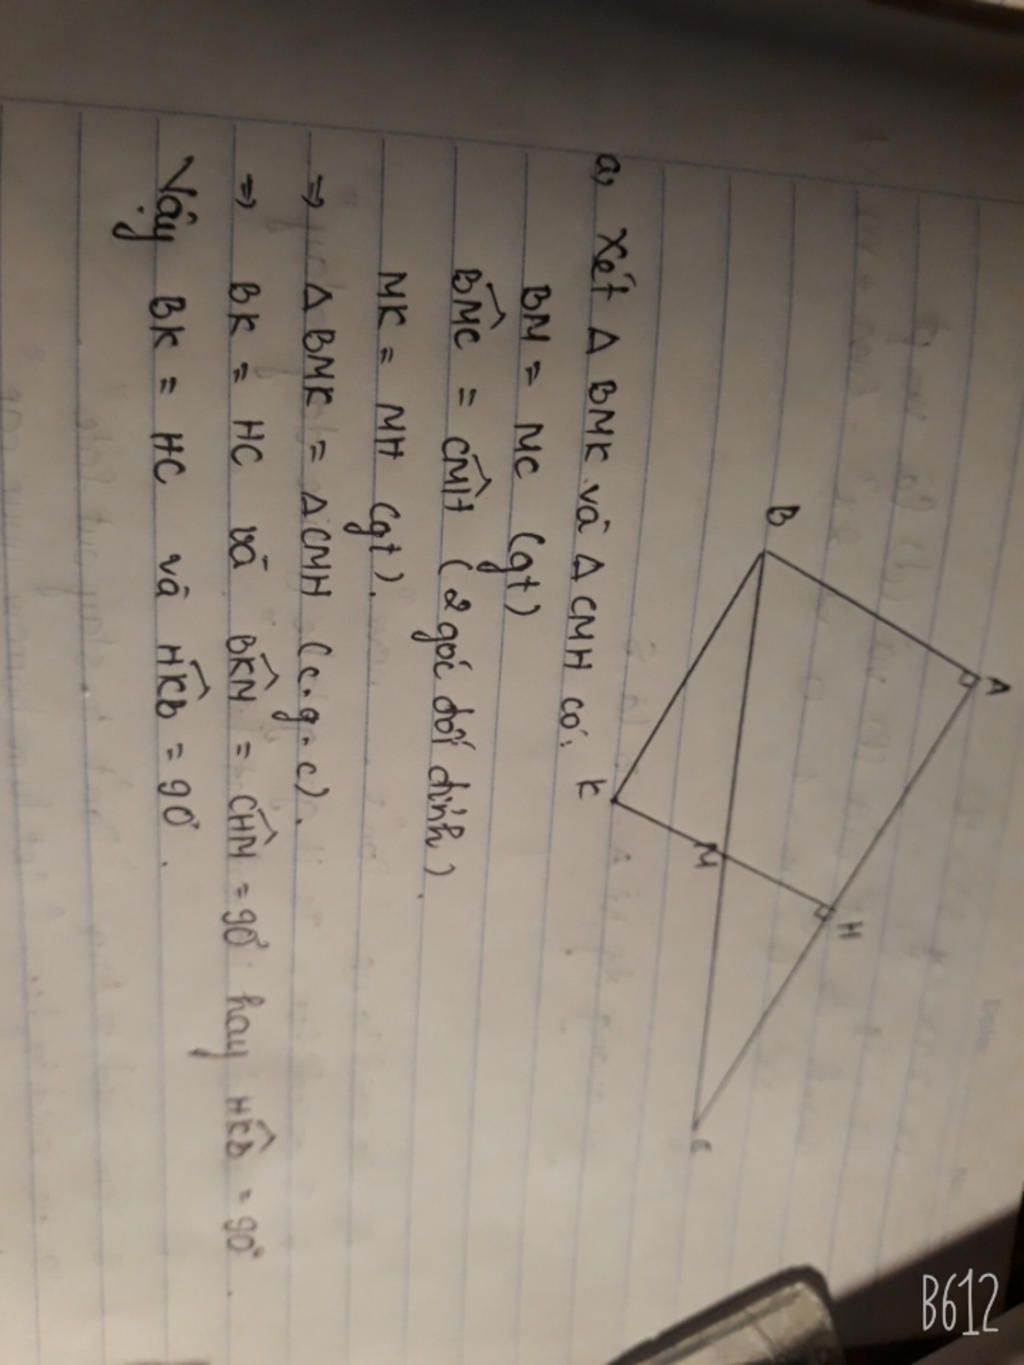 A
B
H
K
M
C
a, Xét Δ BMK và Δ CMH có:
BM = MC (gt)
BMC = CMH (2 góc đối đỉnh)
MK = MH (gt).
⇒ Δ BMK = Δ CMH (c.g.c).
⇒ BK = HC và BKM = CHM = 90° hay HKB = 90°.
Vậy BK = HC và HKB = 90°.
B612